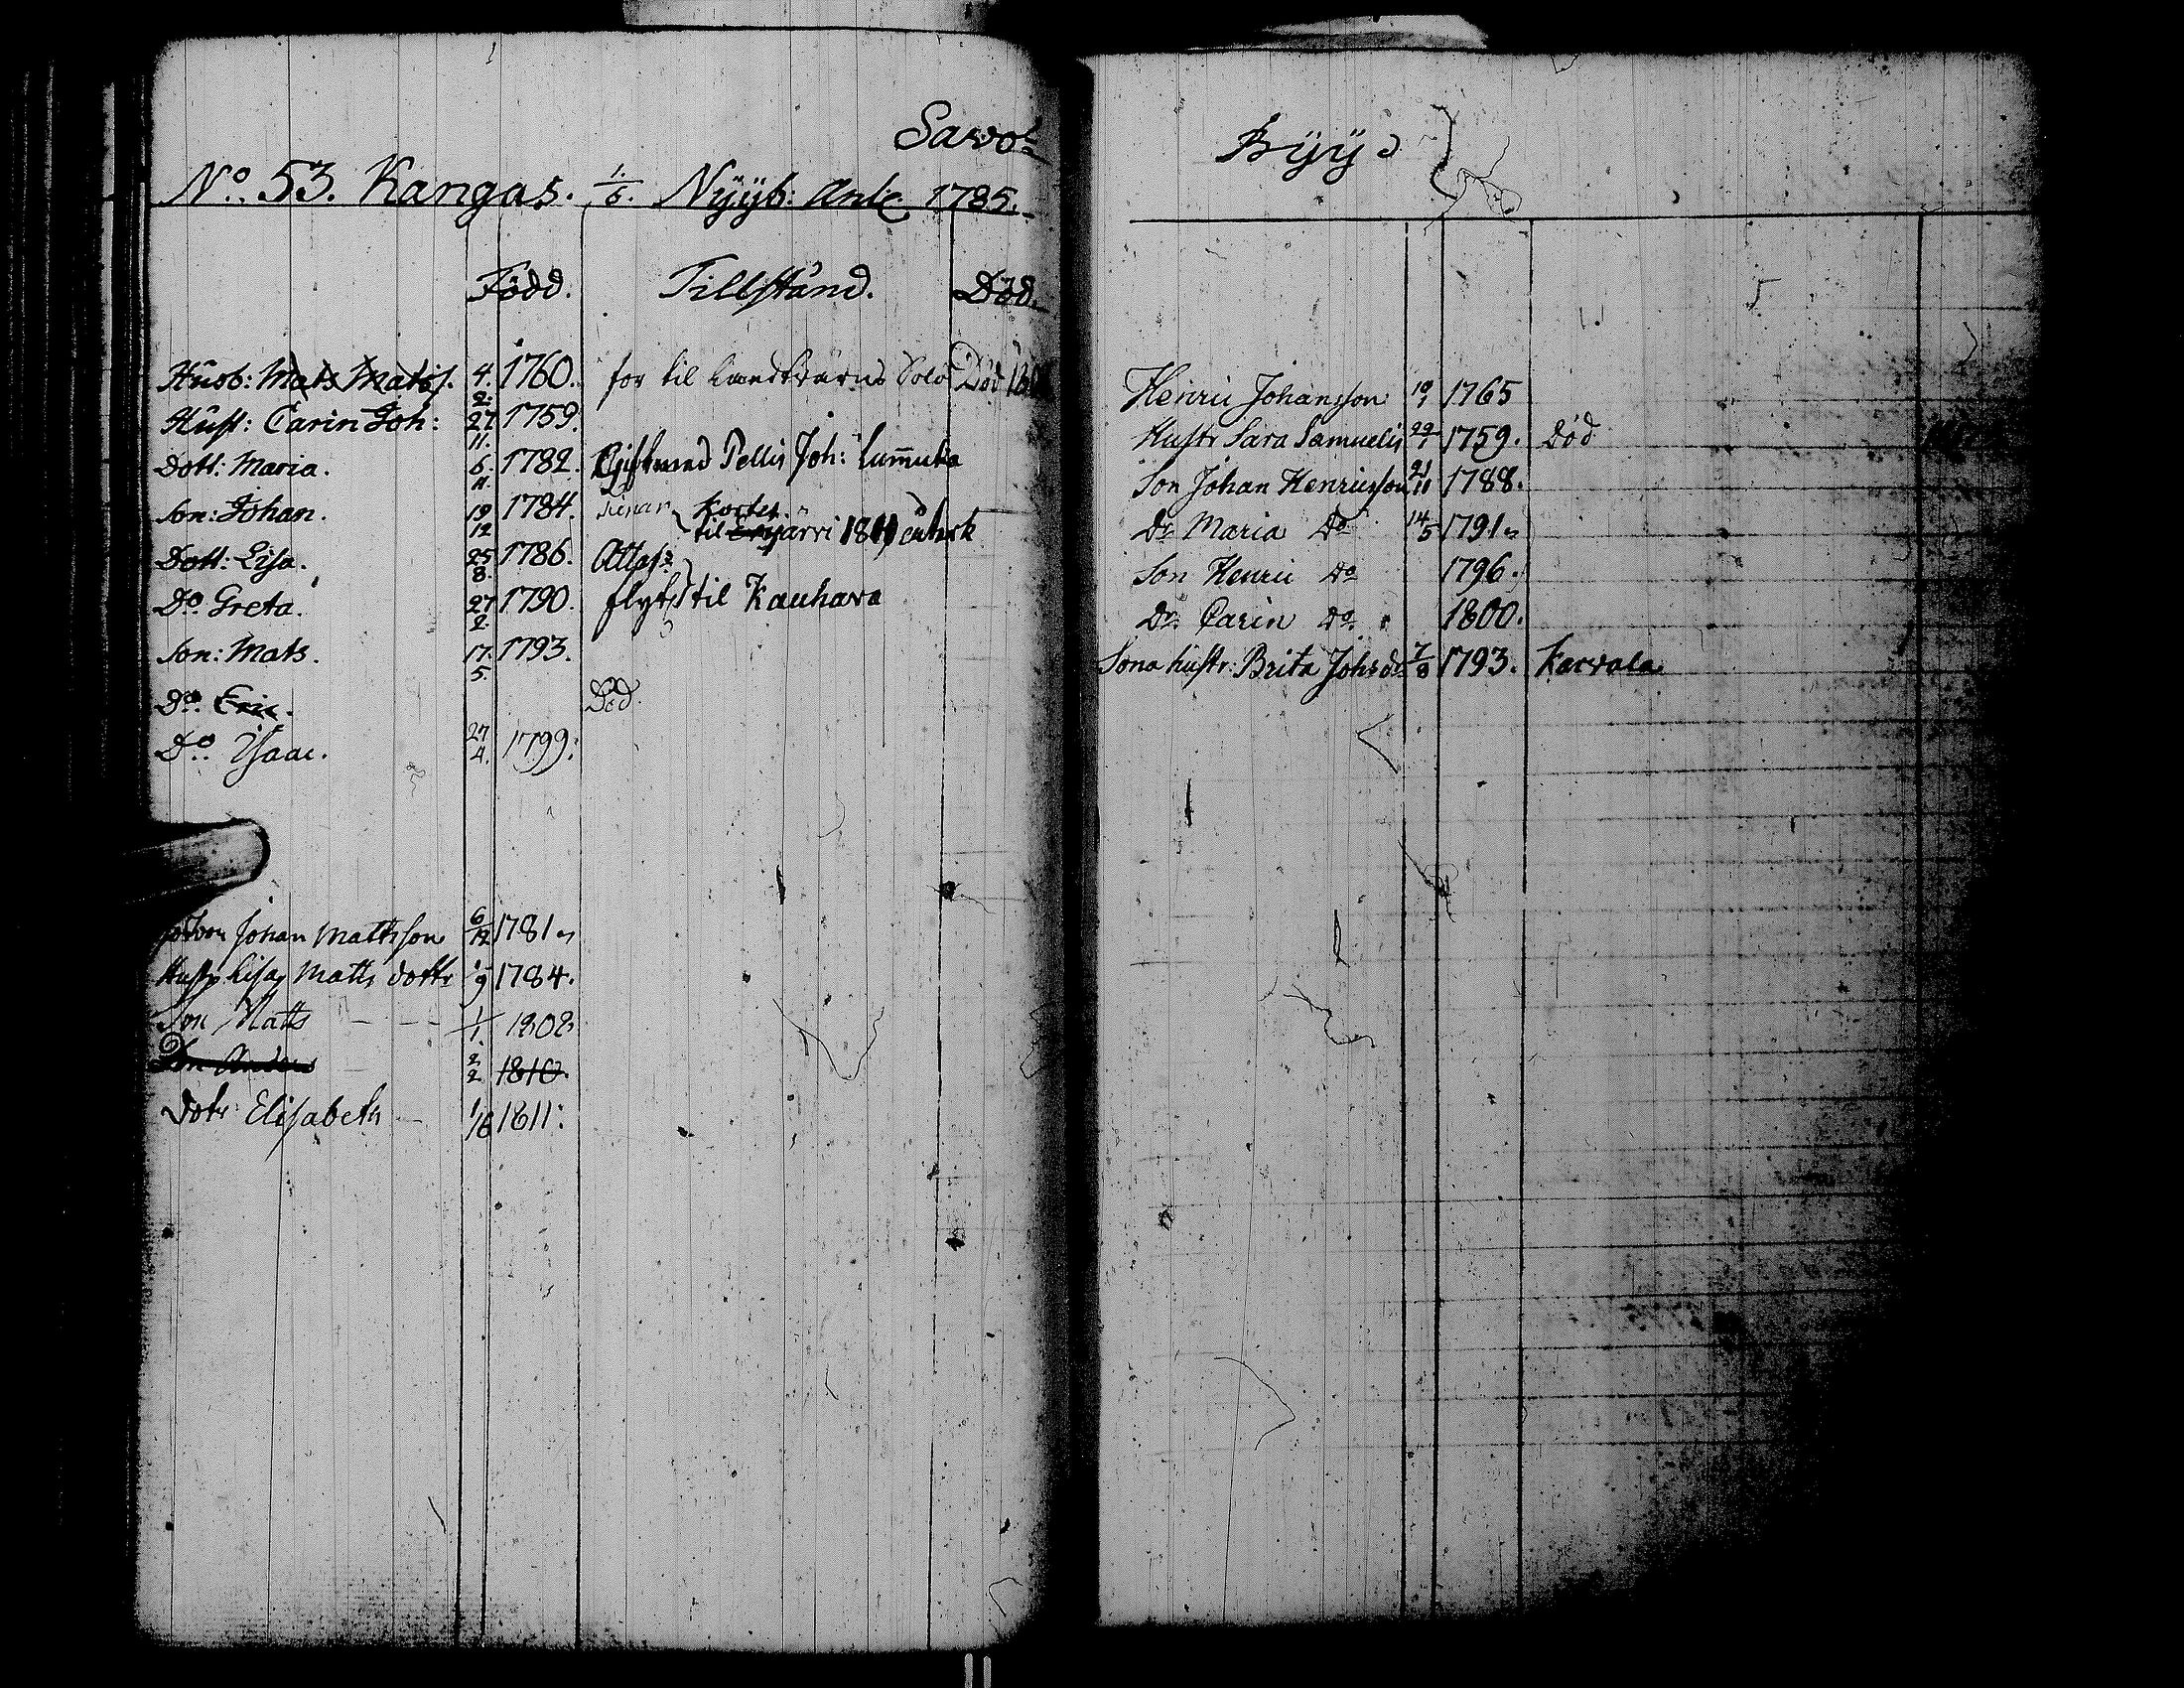 Savo=
No. 53. Kangas. 1/6. Nÿÿb: Anl: 1785.
Född. Tillstånd. Död.
Husb: Mats Matss. 4/2. 1760. for til Död
Hust: Carin Joh: 27/11. 1759.
Dott: Maria. 6/11. 1782. Gift med Pellis Joh: Lummuka
Son: Johan. 19/12 1784. Kortes.
til 1811
Dott: Lisa. 25/8. 1786. Attest
Do. Greta. 27/2. 1790. flytt til Kauhava
Son: Mats. 17/5. 1793.
Do. Eric. Död.
Do. Isaac. 27/4. 1799.
Johan Mattsson 6/12 1781
Hust Lisa Matts dottr 1/9 1784.
Son Matts - - - 1/1. 1808
Son Anders 2/2 1810.
Dotr Elisabeth 1/6 1811.
Byy
Henric Johansson 10/1 1765
Hustr Sara Samuels 22/1 1759. Död
Son Johan Henricsson 21/10 1788.
Dr Maria Do 14/5 1791
Son Henric Do 1796.
Dr Carin Do 1800.
Sona hustr: Brita Johsdr 7/8 1793. Karvala